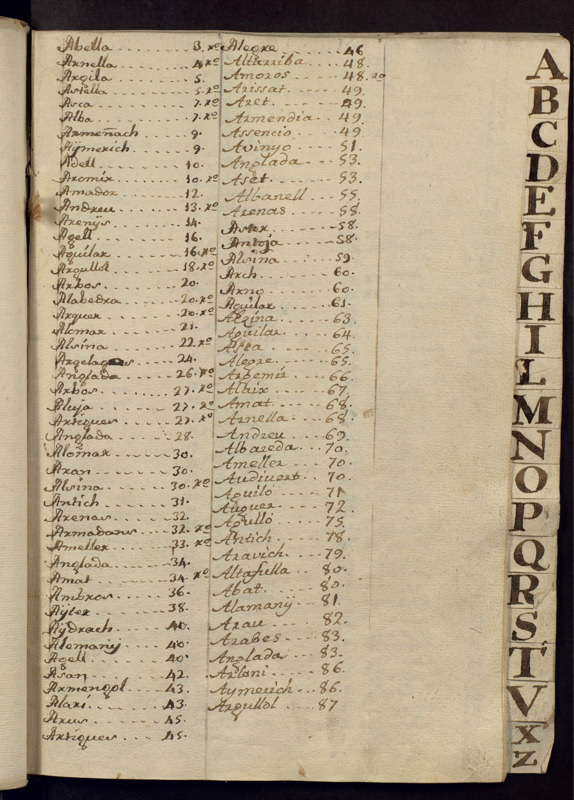 Abella 3. xo
Arnella 4 xo
Argila 5.
Astella 5. xo
Asca 7. xo
Alba 7. xo
Armeñach 9.
Aymerich 9.
Adell 10.
Aromir 10. xo
Amador 12.
Andreu 13. xo
Arenÿs 14.
Agell 16.
Aguilar 16. xo
Argullol 18. xo
Arbos 20.
Alabedra 20. xo
Arquer 20. xo
Alomar 21.
Alsina 22. xo
24.
Anglada 26. xo
Arbos 27. xo
Aluja 27. xo
Artigues 27. xo
Anglada 28.
Alomar 30.
Aran 30.
Alsina 30. xo
Antich 31.
Arenas 32.
Armadans 32. xo
Ameller 33. xo
Anglada 34.
Amat 34 xo
Ambros 36.
Aÿter 38.
Aÿdrach 40.
Alemanÿ 40.
Agell 40.
Asan 42.
Armengol 43.
Alari 43.
Arus 45.
Artigues 45.
Alegre 46
Altarriba 48.
Amoros 48. xo
Arissat 49.
Aret 49.
Armendia 49.
Assencio 49.
Avinyo 51.
Anglada 53.
Aset 53.
Albanell 55.
Arenas 58.
Aster 58.
Antoja 58.
Alsina 59.
Arch 60.
Arno 60.
Aguilar 61.
Alzina 63.
Aguilar 64.
Asta 65.
Alegre 65.
Arbemir 66.
Alaix 67.
Amat 68.
Arnella 68.
Andreu 69.
Albareda 70.
Ameller 70.
Audivert 70.
Aguiló 71
Auguer 72
Agulló 75.
Antich 78.
Aravich 79.
Altafulla 80.
Abat 80.
Alamanÿ 81.
Arau 82.
Arabes 83.
Anglada 83.
Ardoni 86.
Aymerich 86.
Argullol 87
A
B
C
D
E
F
G
H
I
L
M
N
O
P
Q
R
S
T
V
X
Z